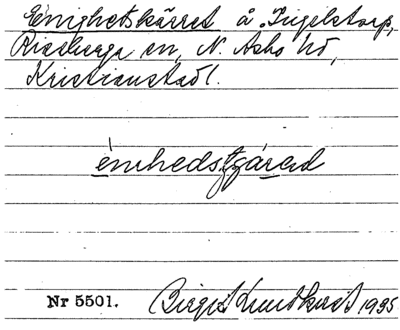 Enighetskärret å Ingelstorp,
Riseberga sn, N. Åsbo hd,
Kristianstad l.
énıhedstjárəd
Nr 5501. Birgit Lundkvist 1935